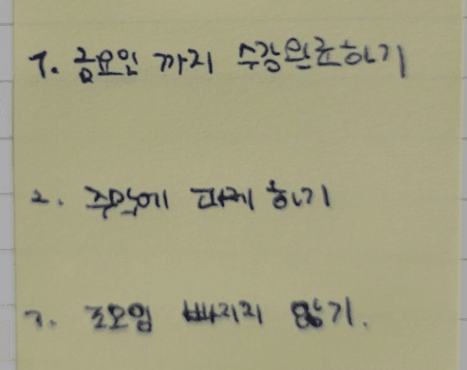 1. 금요일 까지 수강완료하기
2. 주말에 과제 하기
3. 조모임 빠지지 않기.